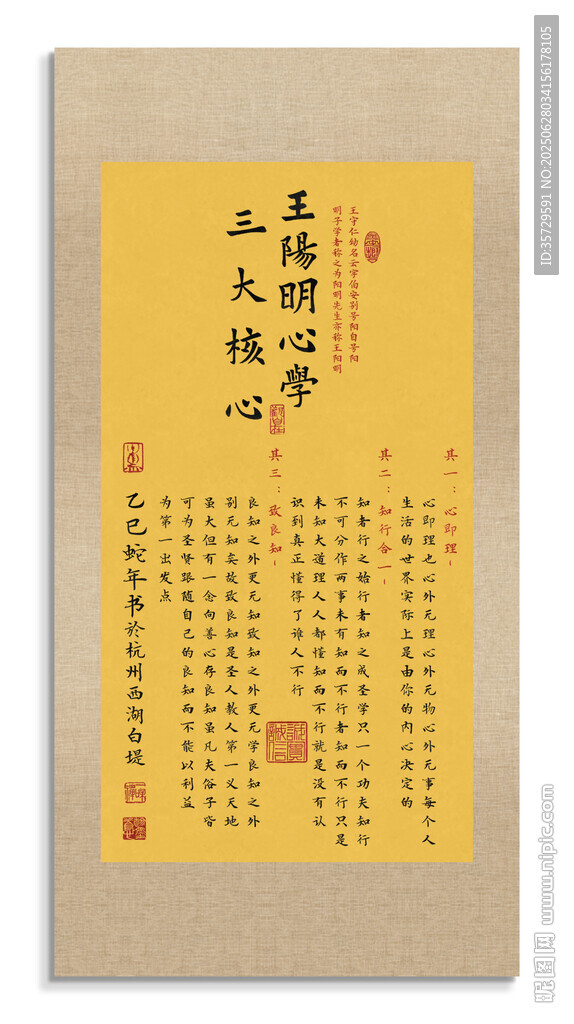 王守仁幼名云字伯安别号阳自号阳
明子学者称之为阳明先生亦称王阳明
王陽明心學
三大核心
其一：心即理-
心即理也心外无理心外无物心外无事每个人
生活的世界实际上是由你的内心决定的
其二：知行合一-
知者行之始行者知之成圣学只一个功夫知行
不可分作两事未有知而不行者知而不行只是
未知大道理人人都懂知而不行就是没有认
识到真正懂得了谁人不行
其三：致良知-
良知之外更无知致知之外更无学良知之外
别无知矣故致良知是圣人教人第一义天地
虽大但有一念向善心存良知虽凡夫俗子皆
可为圣贤跟随自己的良知而不能以利益
为第一出发点
乙巳蛇年书於杭州西湖白堤
ID:35729591 NO:20250628034156178105
昵图网 www.nipic.com